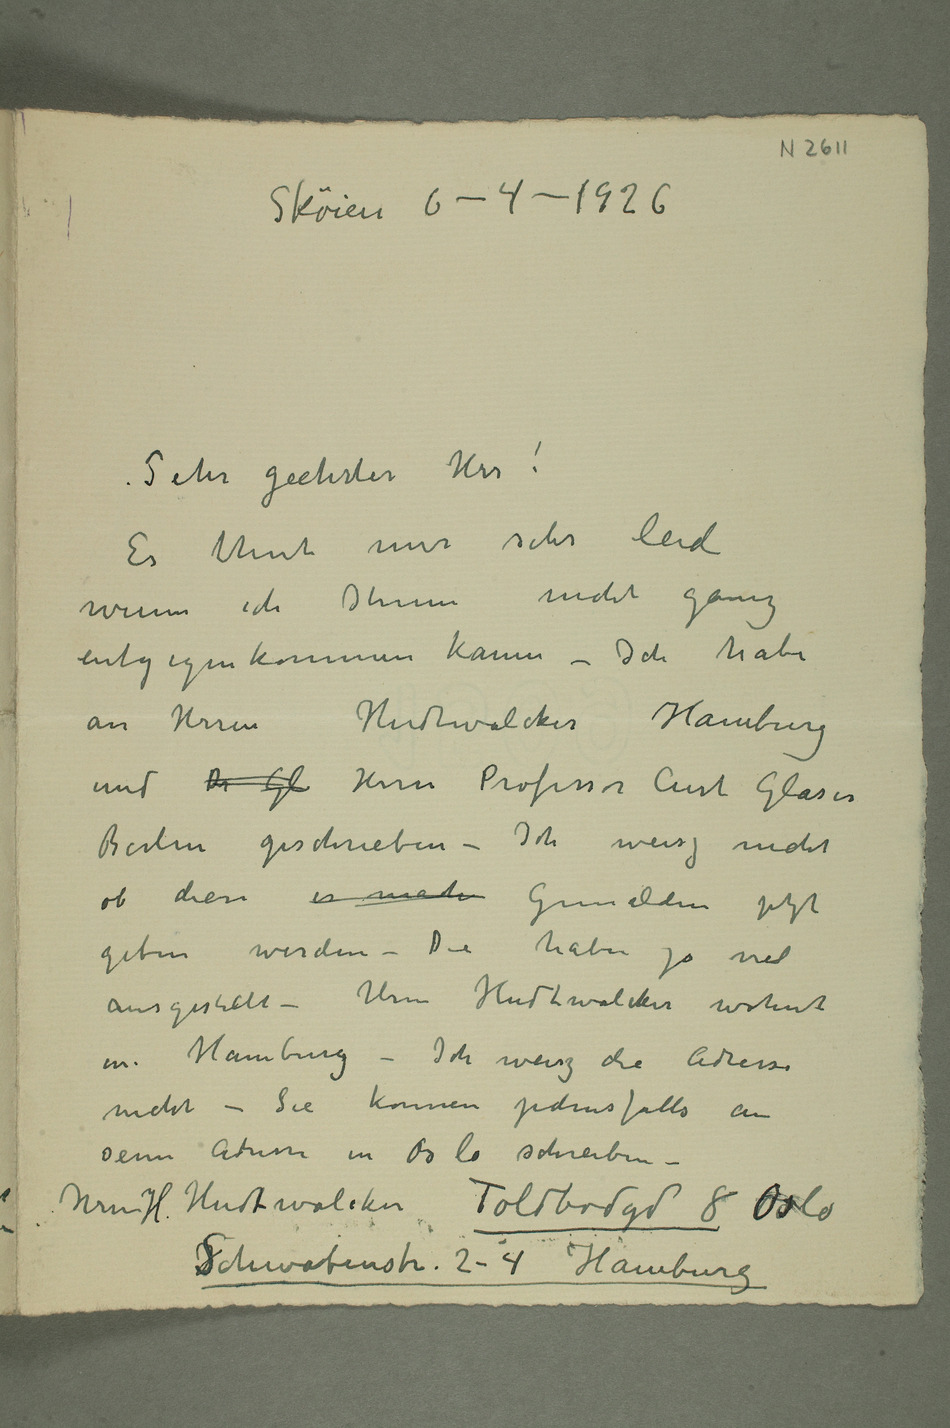 N 2611
Sköien 6–4–1926
Sehr geehrter Herr!
Es thut mir sehr leid
wenn ich Ihnen nicht ganz
entgegenkommen kann – Ich habe
an Herrn Hudtwalcker Hamburg
und Dr Gl Herrn Professor Curt Glaser
Berlin geschrieben – Ich weisz nicht
ob diese es Gemälden jetzt
geben werden – Die haben ja viel
ausgestellt – Herrn Hudtwalcker wohnt
in Hamburg – Ich weisz die Adresse
nicht – Sie konnen jedensfalls an
seine Adresse in Oslo schreiben –
Herrn H. Hudtwalcker Toldbodgd 8 Oslo
Schwabenstr. 2–4 Hamburg